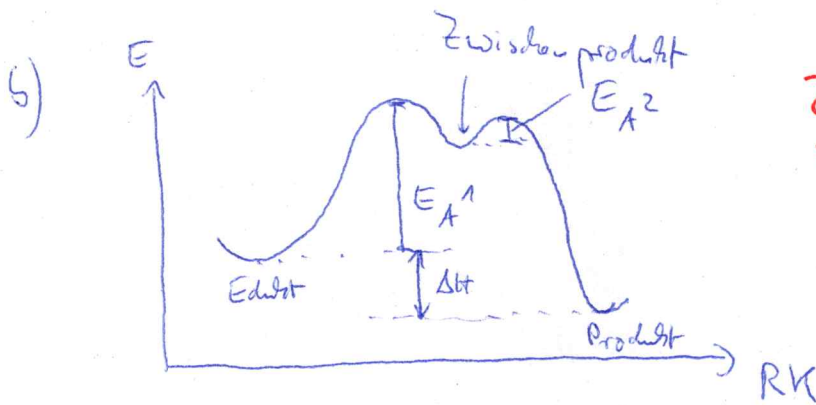 b)
E
Zwischenprodukt
E_A2
E_A1
ΔH
Edukt
Produkt
RK